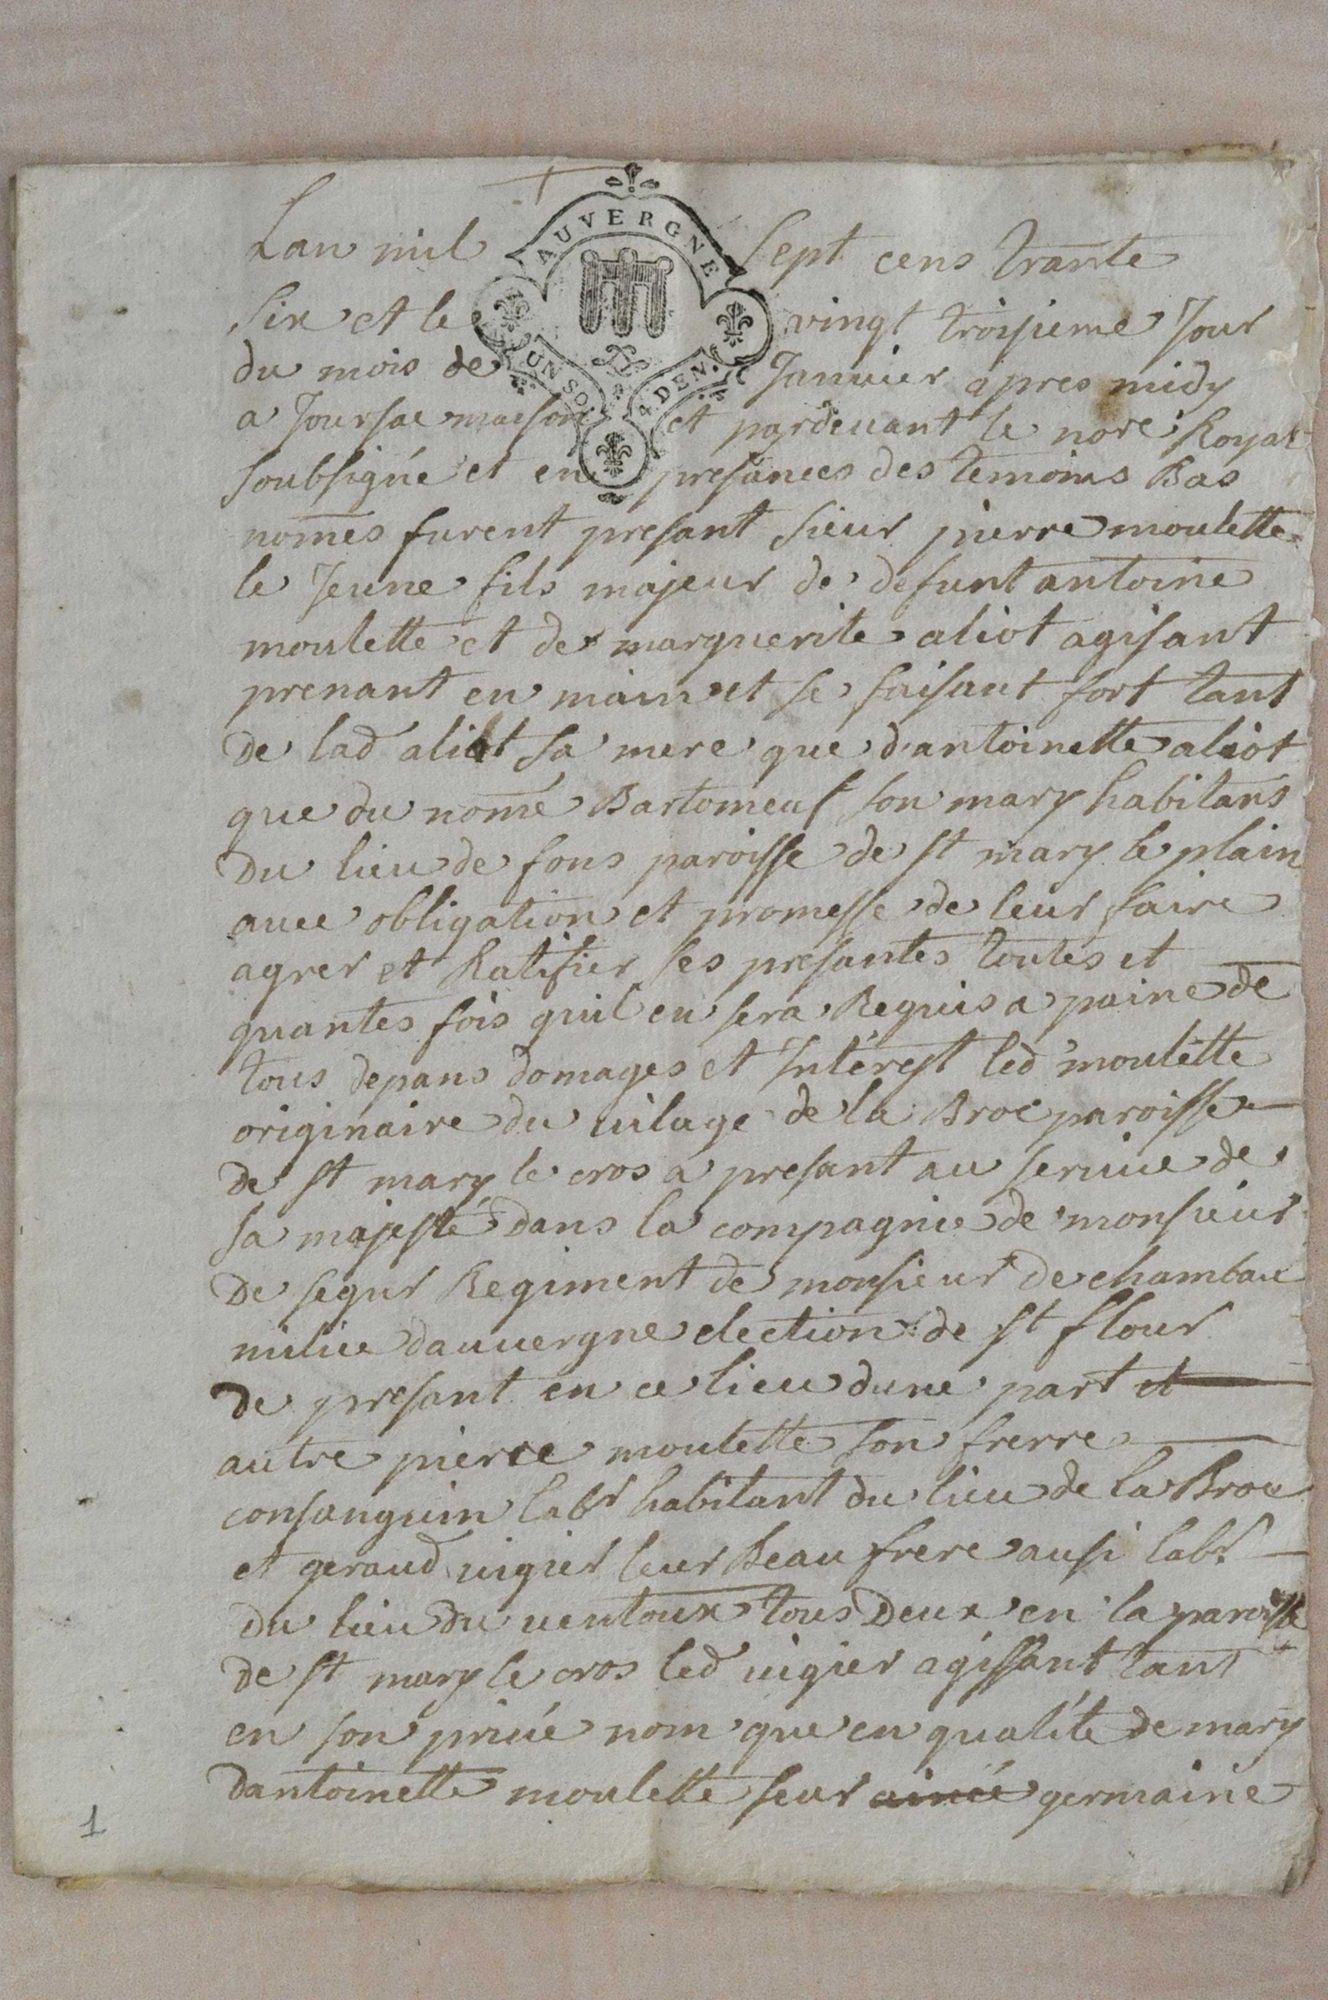 AUVERGNE
UN SOL 4 DEN.
Lan mil sept cens trante
six et le vingt troisieme Jour
du mois de Januier apres midy
a Joursac maison et pardeuant le nore Royal
soubsigné et en presances des temoins Bas
només furent presant sieur pierre moulette
le Jeune fils majeur de defunt antoine
moulette et de marguerite aliot agisant
prenant en main et se faisant fort tant
de lad aliot sa mere que d'antoinette aliot
que du nomé Bartomeuf son mary habitans
Du lieu de fons paroisse de st mary le plain
auec obligation et promesse de leur faire
agrer et Ratifier ses presantes toutes et
quantes fois quil en sera Requis a paine de
tous depans domages et Intérest led moulette
originaire du uilage de la Broc paroisse
de st mary le cros a presant au seruice de
sa majesté dans la compagnie de monsieur
De segur Regiment de monsieur de chambau
milice dauuergne election de st flour
de presant en ce lieu dune part et
autre pierre moulette son frerre
consanguin labr habitant du lieu de la Broc
et geraud uigier leur Beau frere ausi labr
du lieu du uentoux tous Deux en la paroisse
de st mary le cros led uigier agissant tant
en son priué nom que en qualité de mary
Dantoinette moulette seur ainée germaine
1